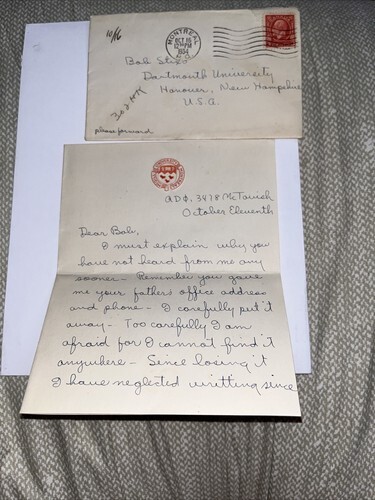 10/16
MONTREAL
OCT 16
12 30 PM
1934
Bob
Dartmouth University
Hanover, New Hampshire
U.S.A.
302 HH
please forward
ΑΔΦ, 3478 McTavish
October Eleventh
Dear Bob,
I must explain why you
have not heard from me any
sooner – Remember you gave
me your father's office address
and phone – I carefully put it
away – Too carefully I am
afraid for I cannot find it
anywhere – Since losing it
I have neglected writting since